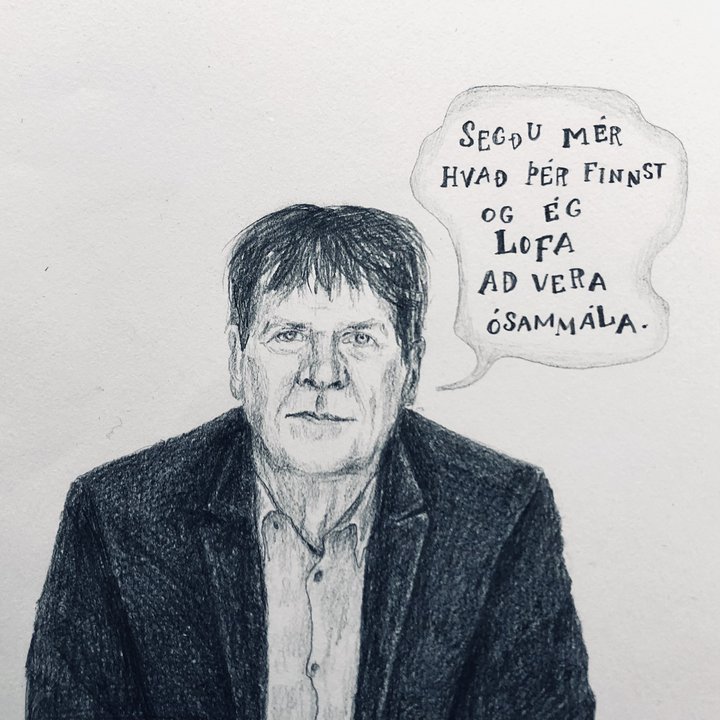 SEGÐU MÉR
HVAÐ ÞÉR FINNST
OG ÉG
LOFA
AÐ VERA
ÓSAMMÁLA.